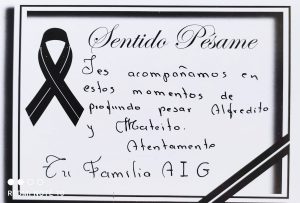 Sentido Pésame
Les acompañamos en
estos momentos de
profundo pesar Alfredito
y Mateito.
Atentamente
Tu Familia AIG